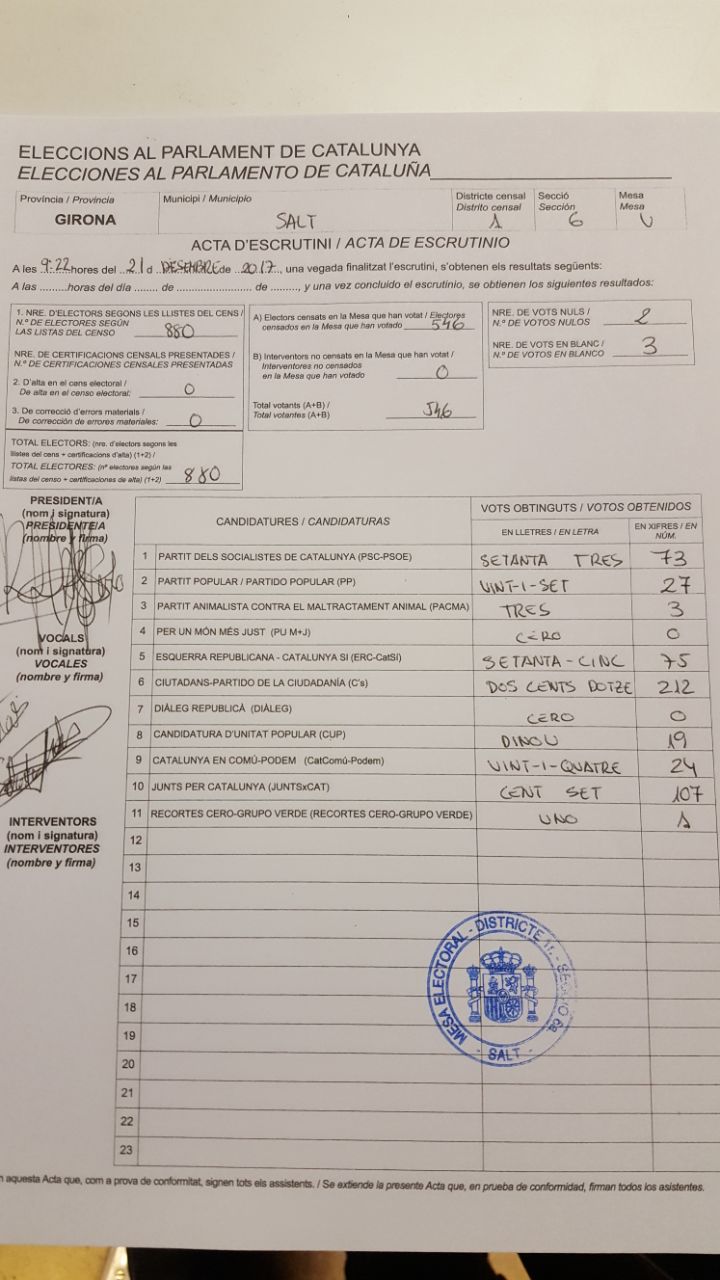 ELECCIONS AL PARLAMENT DE CATALUNYA
ELECCIONES AL PARLAMENTO DE CATALUÑA
Província / Provincia
GIRONA
Municipi / Municipio
SALT
Districte censal
Distrito censal
1
Secció
Sección
6
Mesa
Mesa
U
ACTA D'ESCRUTINI / ACTA DE ESCRUTINIO
A les 9:22 hores del 21 d DESEMBRE de 2017, una vegada finalitzat l'escrutini, s'obtenen els resultats següents:
A las .........horas del día ........ de .................... de ........., y una vez concluido el escrutinio, se obtienen los siguientes resultados:
1. NRE. D'ELECTORS SEGONS LES LLISTES DEL CENS /
N.º DE ELECTORES SEGÚN
LAS LISTAS DEL CENSO 880
NRE. DE CERTIFICACIONS CENSALS PRESENTADES /
N.º DE CERTIFICACIONES CENSALES PRESENTADAS
2. D'alta en el cens electoral /
De alta en el censo electoral: 0
3. De correcció d'errors materials /
De corrección de errores materiales: 0
TOTAL ELECTORS: (nre. d'electors segons les
llistes del cens + certificacions d'alta) (1+2) /
TOTAL ELECTORES: (nº electores según las
listas del censo + certificaciones de alta) (1+2) 880
A) Electors censats en la Mesa que han votat / Electores
censados en la Mesa que han votado 546
B) Interventors no censats en la Mesa que han votat /
Interventores no censados
en la Mesa que han votado 0
Total votants (A+B) /
Total votantes (A+B) 546
NRE. DE VOTS NULS /
N.º DE VOTOS NULOS 2
NRE. DE VOTS EN BLANC /
N.º DE VOTOS EN BLANCO 3
PRESIDENT/A
(nom i signatura)
PRESIDENTE/A
(nombre y firma)
VOCALS
(nom i signatura)
VOCALES
(nombre y firma)
INTERVENTORS
(nom i signatura)
INTERVENTORES
(nombre y firma)
CANDIDATURES / CANDIDATURAS
VOTS OBTINGUTS / VOTOS OBTENIDOS
EN LLETRES / EN LETRA
EN XIFRES / EN NÚM.
1 PARTIT DELS SOCIALISTES DE CATALUNYA (PSC-PSOE) SETANTA TRES 73
2 PARTIT POPULAR / PARTIDO POPULAR (PP) VINT-I-SET 27
3 PARTIT ANIMALISTA CONTRA EL MALTRACTAMENT ANIMAL (PACMA) TRES 3
4 PER UN MÓN MÉS JUST (PU M+J) CERO 0
5 ESQUERRA REPUBLICANA - CATALUNYA SI (ERC-CatSí) SETANTA-CINC 75
6 CIUTADANS-PARTIDO DE LA CIUDADANÍA (C's) DOS CENTS DOTZE 212
7 DIÀLEG REPUBLICÀ (DIÀLEG) CERO 0
8 CANDIDATURA D'UNITAT POPULAR (CUP) DINOU 19
9 CATALUNYA EN COMÚ-PODEM (CatComú-Podem) VINT-I-QUATRE 24
10 JUNTS PER CATALUNYA (JUNTSxCAT) CENT SET 107
11 RECORTES CERO-GRUPO VERDE (RECORTES CERO-GRUPO VERDE) UNO 1
12
13
14
15
16
17
18
19
20
21
22
23
MESA ELECTORAL - DISTRICTE 1r. - SECCIÓ 6a.
- SALT -
aquesta Acta que, com a prova de conformitat, signen tots els assistents. / Se extiende la presente Acta que, en prueba de conformidad, firman todos los asistentes.